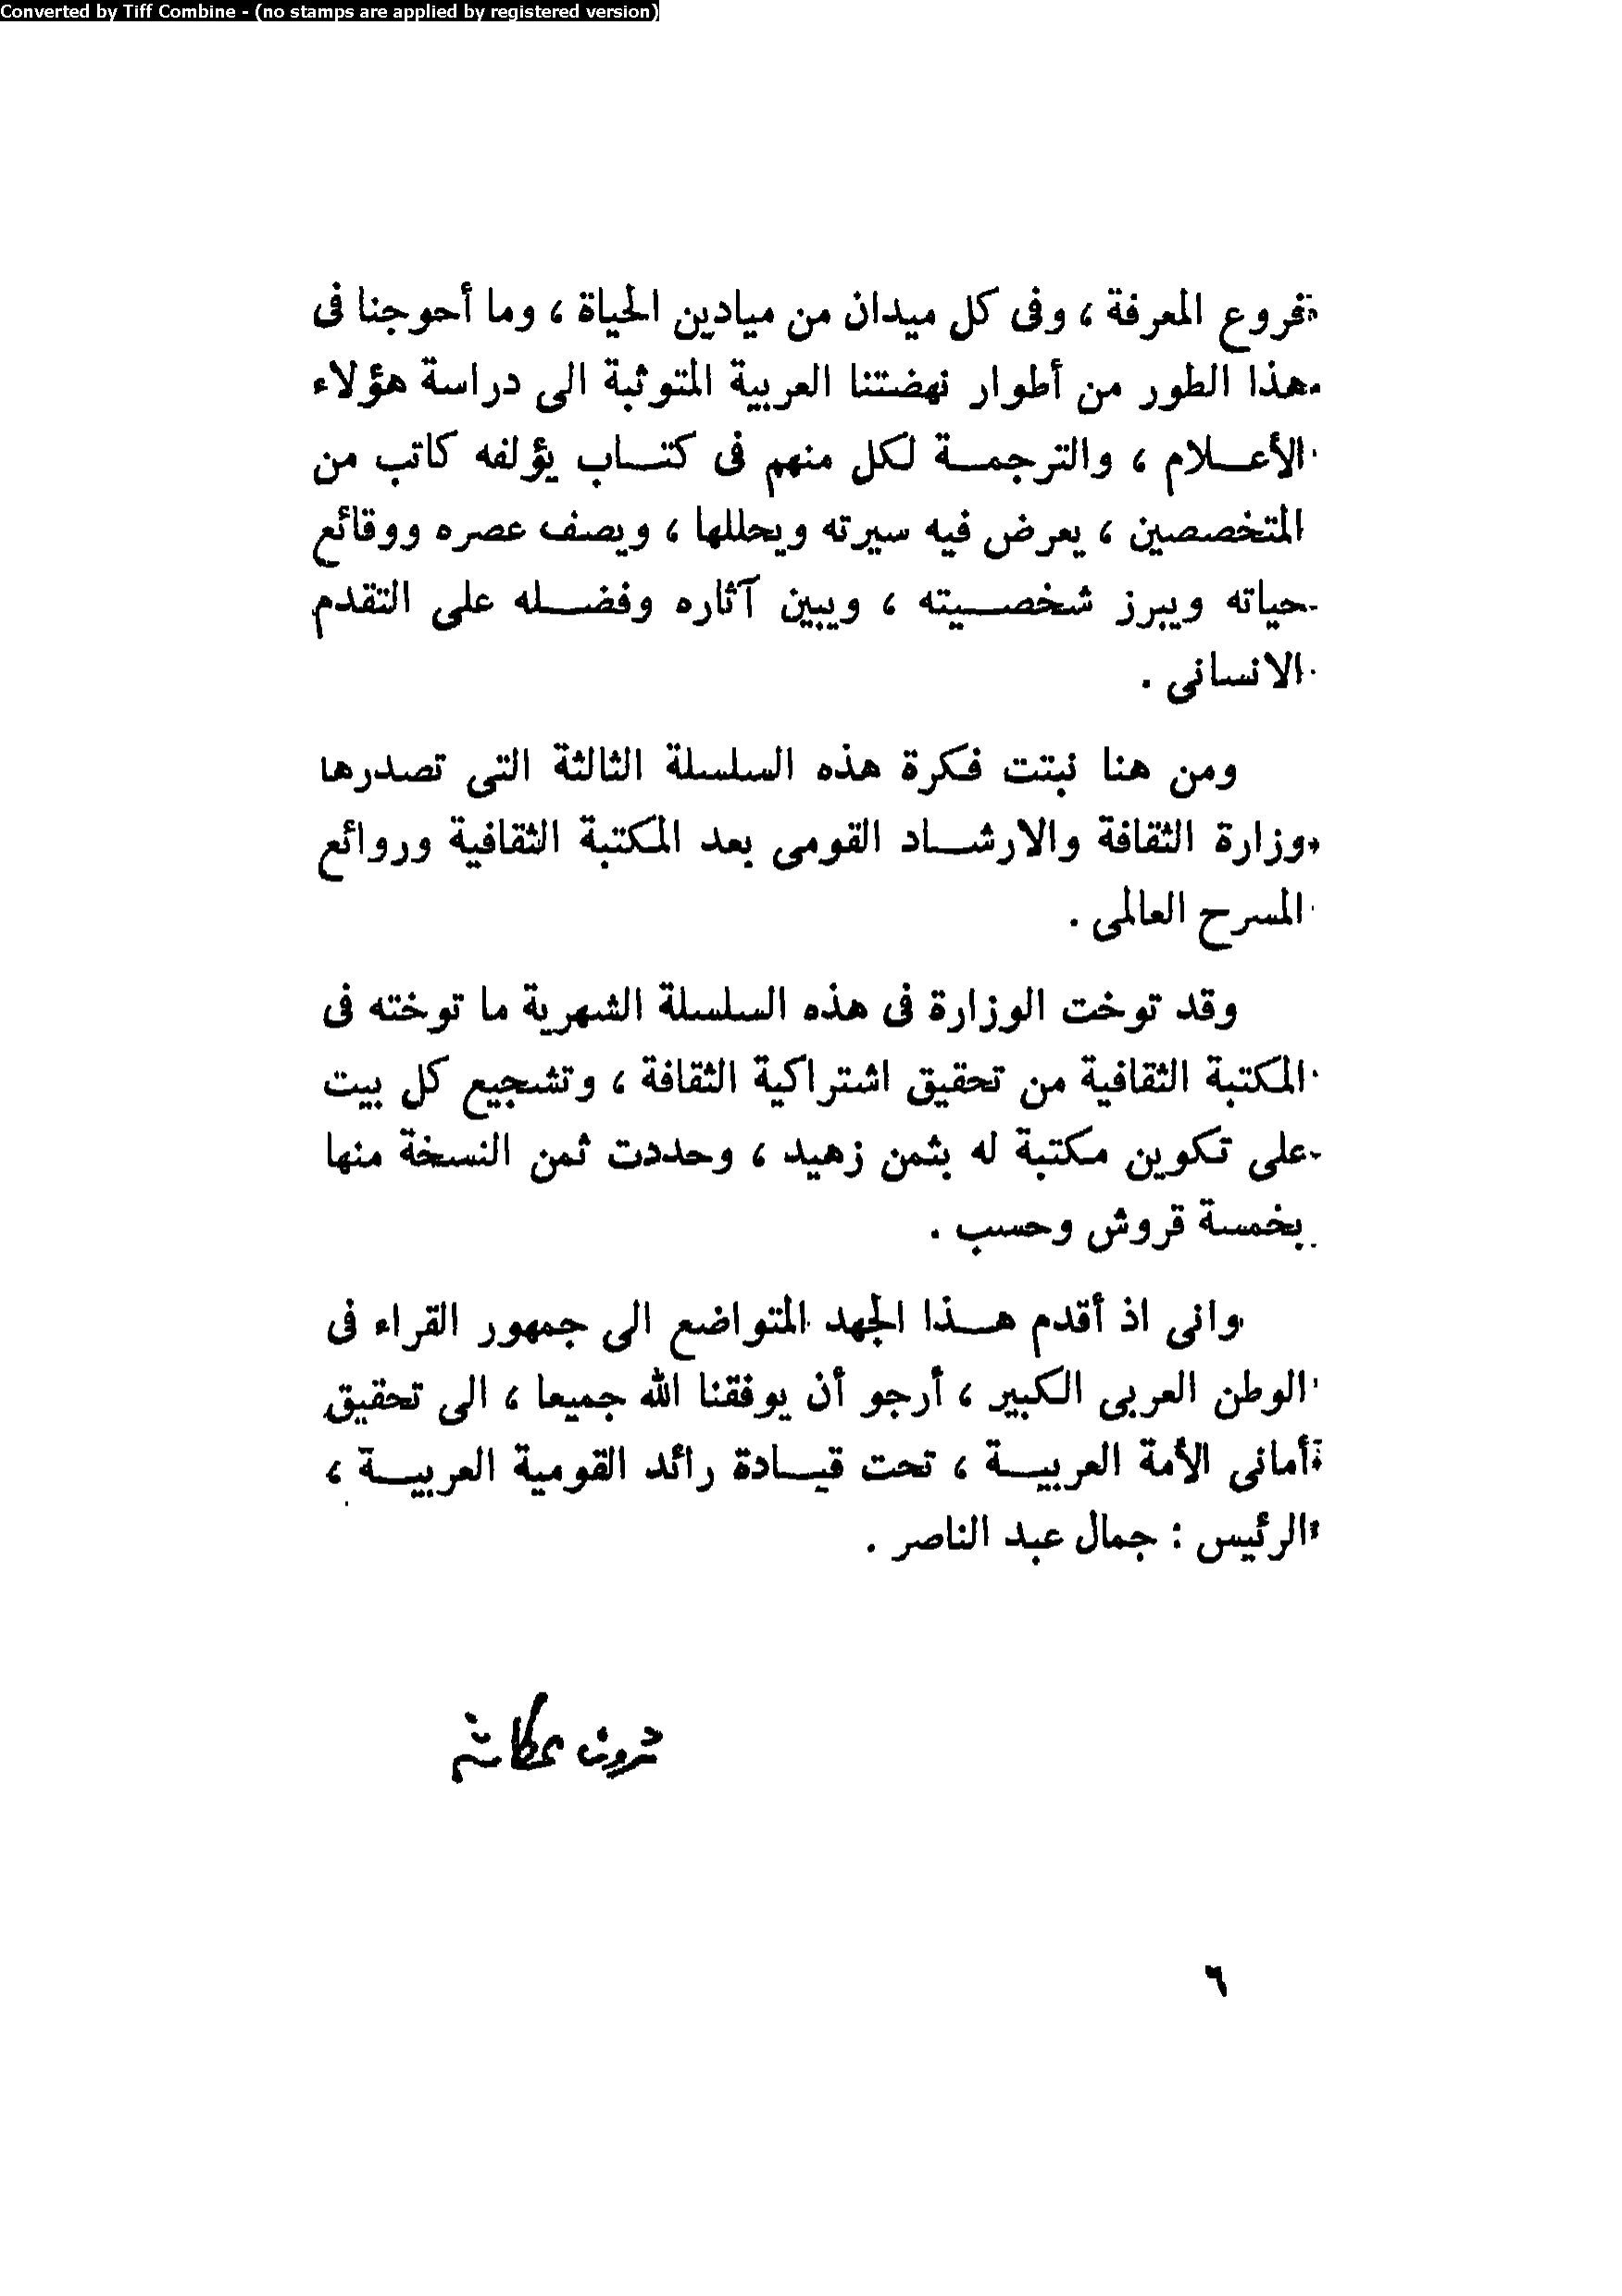 Converted by Tiff Combine - (no stamps are applied by registered version)
فروع المعرفة ، وفى كل ميدان من ميادين الحياة ، وما أحوجنا فى
هذا الطور من أطوار نهضتنا العربية المتوثبة الى دراسة هؤلاء
الأعـــلام ، والترجمـــة لكل منهم فى كتـــاب يؤلفه كاتب من
المتخصصين ، يعرض فيه سيرته ويحللها ، ويصف عصره ووقائع
حياته ويبرز شخصـــيته ، ويبين آثاره وفضـــله على التقدم
الانسانى .
ومن هنا نبتت فكرة هذه السلسلة الثالثة التى تصدرها
وزارة الثقافة والارشـــاد القومى بعد المكتبة الثقافية وروائع
المسرح العالمى .
وقد توخت الوزارة فى هذه السلسلة الشهرية ما توخته فى
المكتبة الثقافية من تحقيق اشتراكية الثقافة ، وتشجيع كل بيت
على تكوين مكتبة له بثمن زهيد ، وحددت ثمن النسخة منها
بخمسة قروش وحسب .
وانى اذ أقدم هـــذا الجهد المتواضع الى جمهور القراء فى
الوطن العربى الكبير ، أرجو أن يوفقنا الله جميعا ، الى تحقيق
أمانى الأمة العربيـــة ، تحت قيـــادة رائد القومية العربيـــة ،
الرئيس : جمال عبد الناصر .
ثروت عكاشة
٦